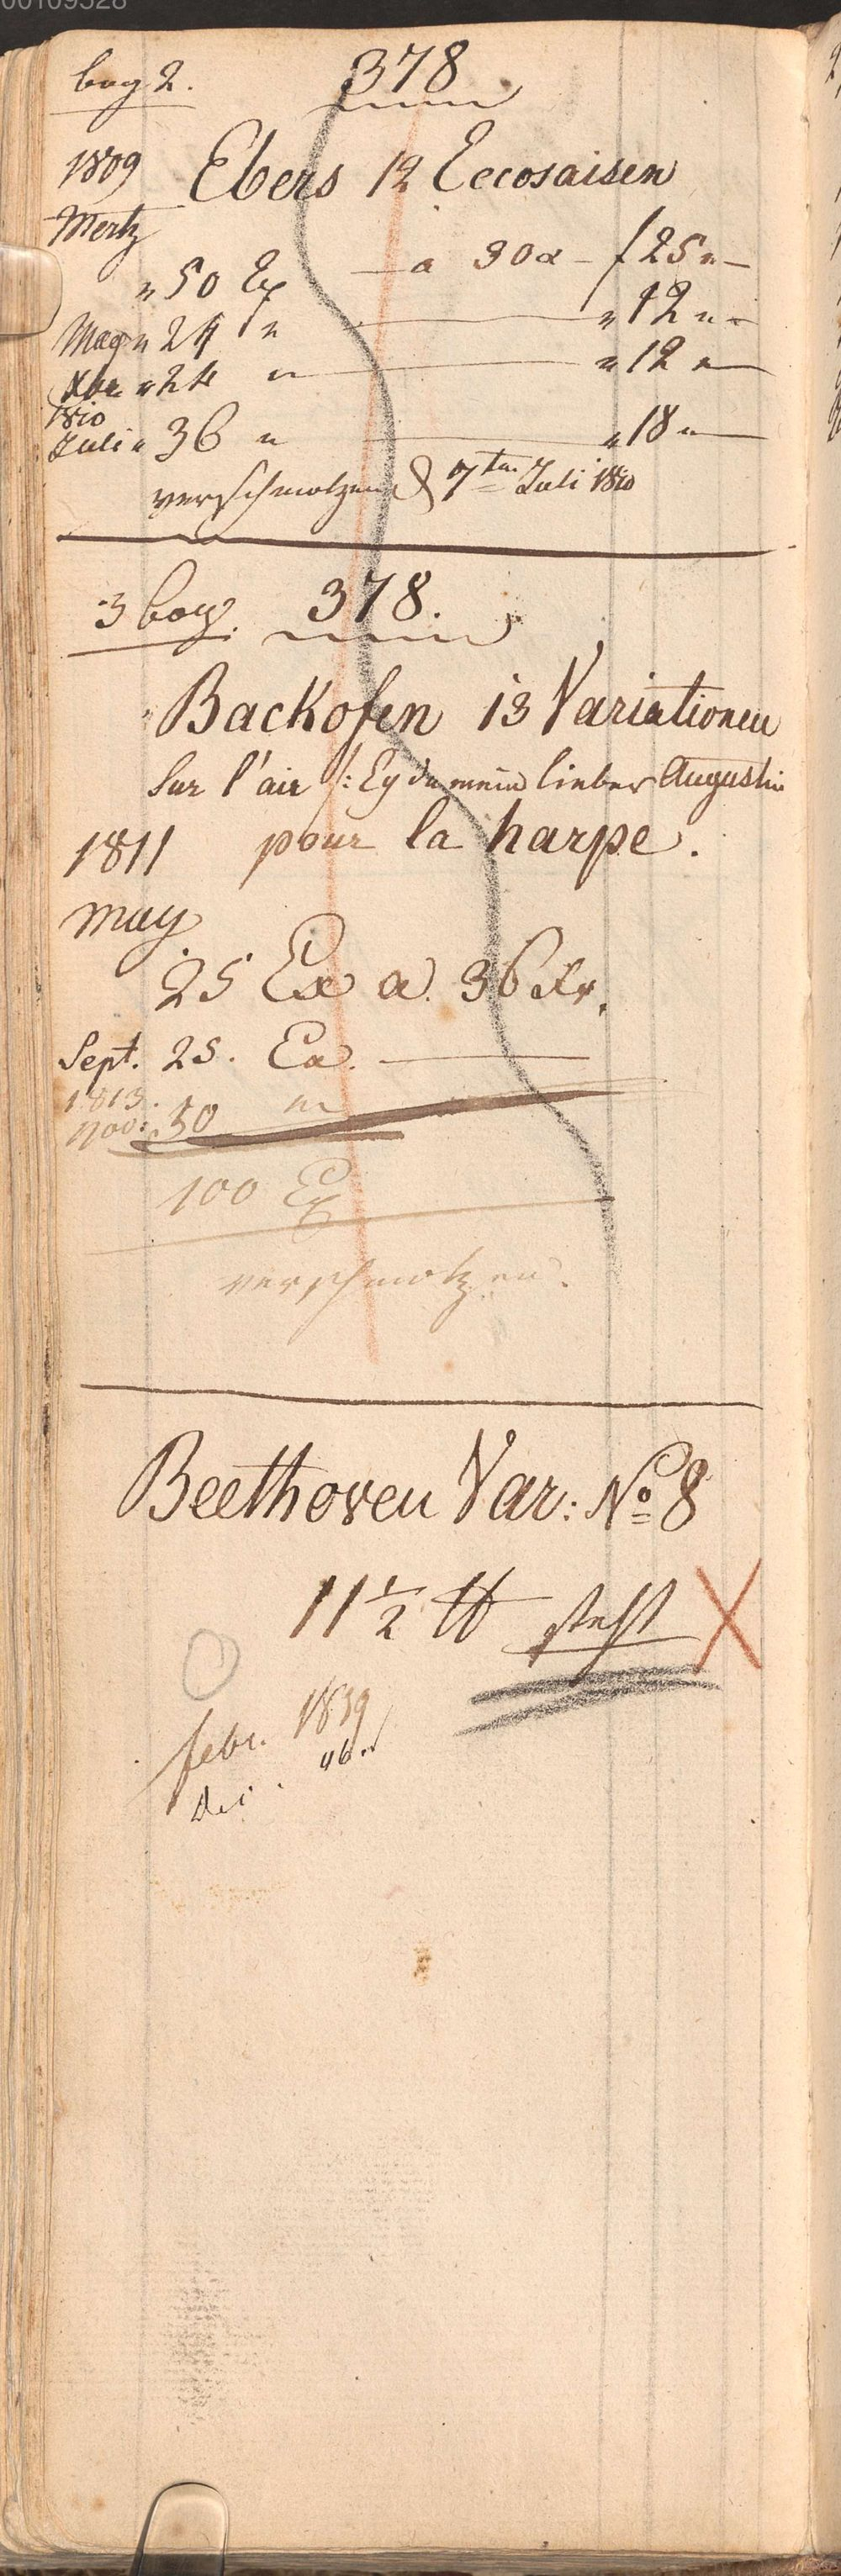 00109528
bog 2. 378
1809 Ebers 12 Eecosaisen
Mertz
" 50 Ex — a 30x — f 25 " —
May " 24 " — " 12 " —
Xbr " 24 " — " 12 " —
1810
Juli " 36 " — " 18 " —
verschmolzen d 7ten Juli 1810
3 bog. 378.
Backofen 13 Variationen
Sur l'air /: Ey du mein lieber Augustin
1811 pour la harpe.
may
25 Ex a 36 Xr.
Sept. 25. Ex. —
1813.
50 "
100 Ex
verschmolzen.
Beethoven Var: No 8
11 1/2 ℔ steht X
febr. 1839
46.